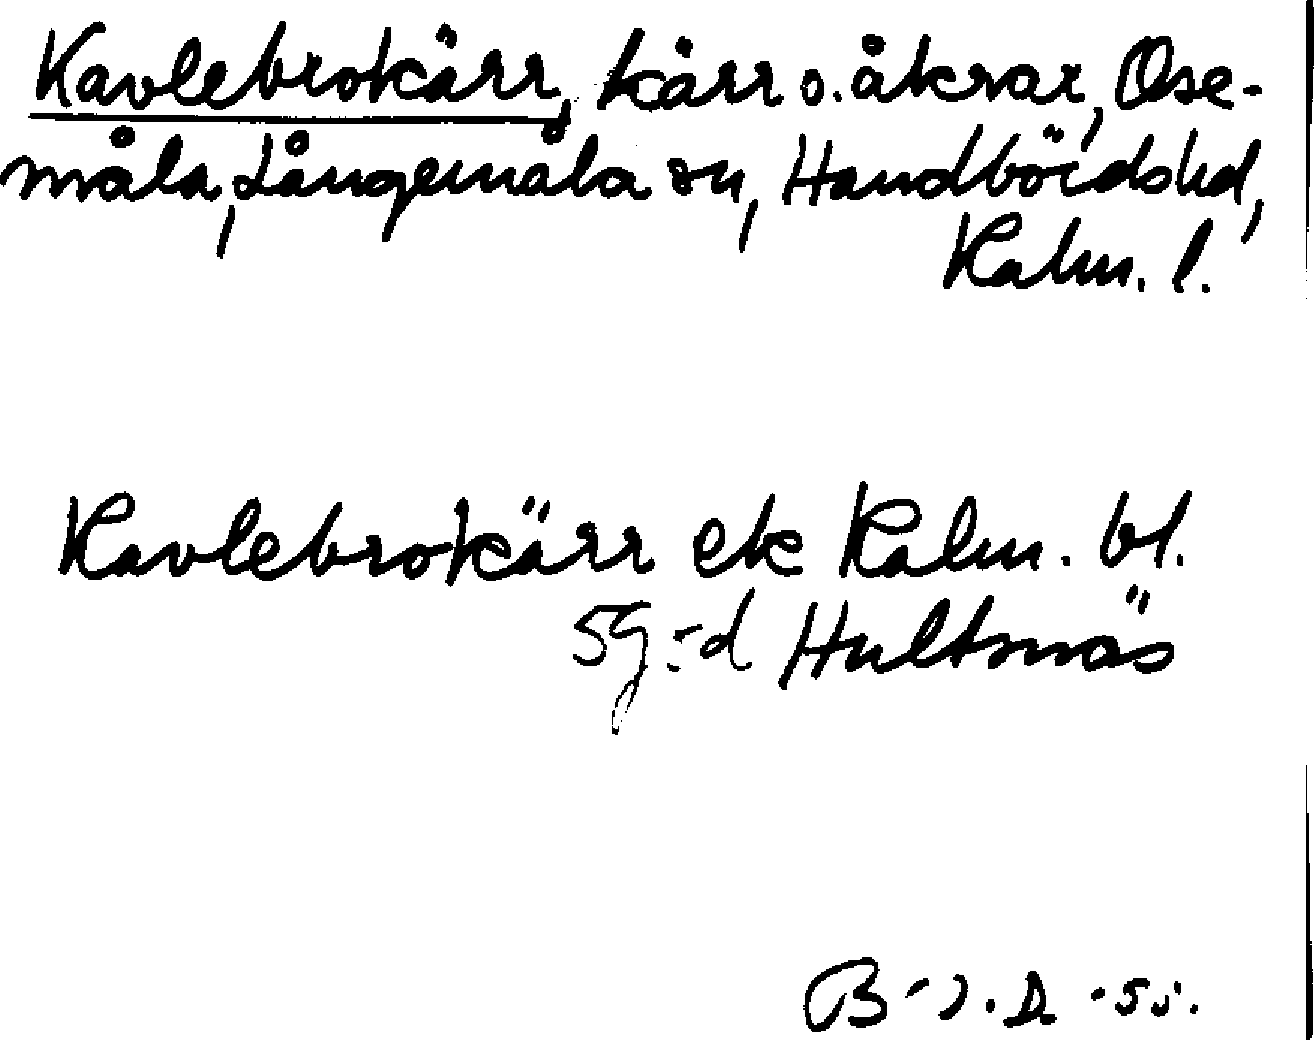 Kavlebrokärr, kärr o. åkrar, Ose-
måla, Långemåla sn, Handbördshd,
Kalm. l.
Kavlebrokärr ek Kalm. bl.
59:d Hultsnäs
B-J.D -55.